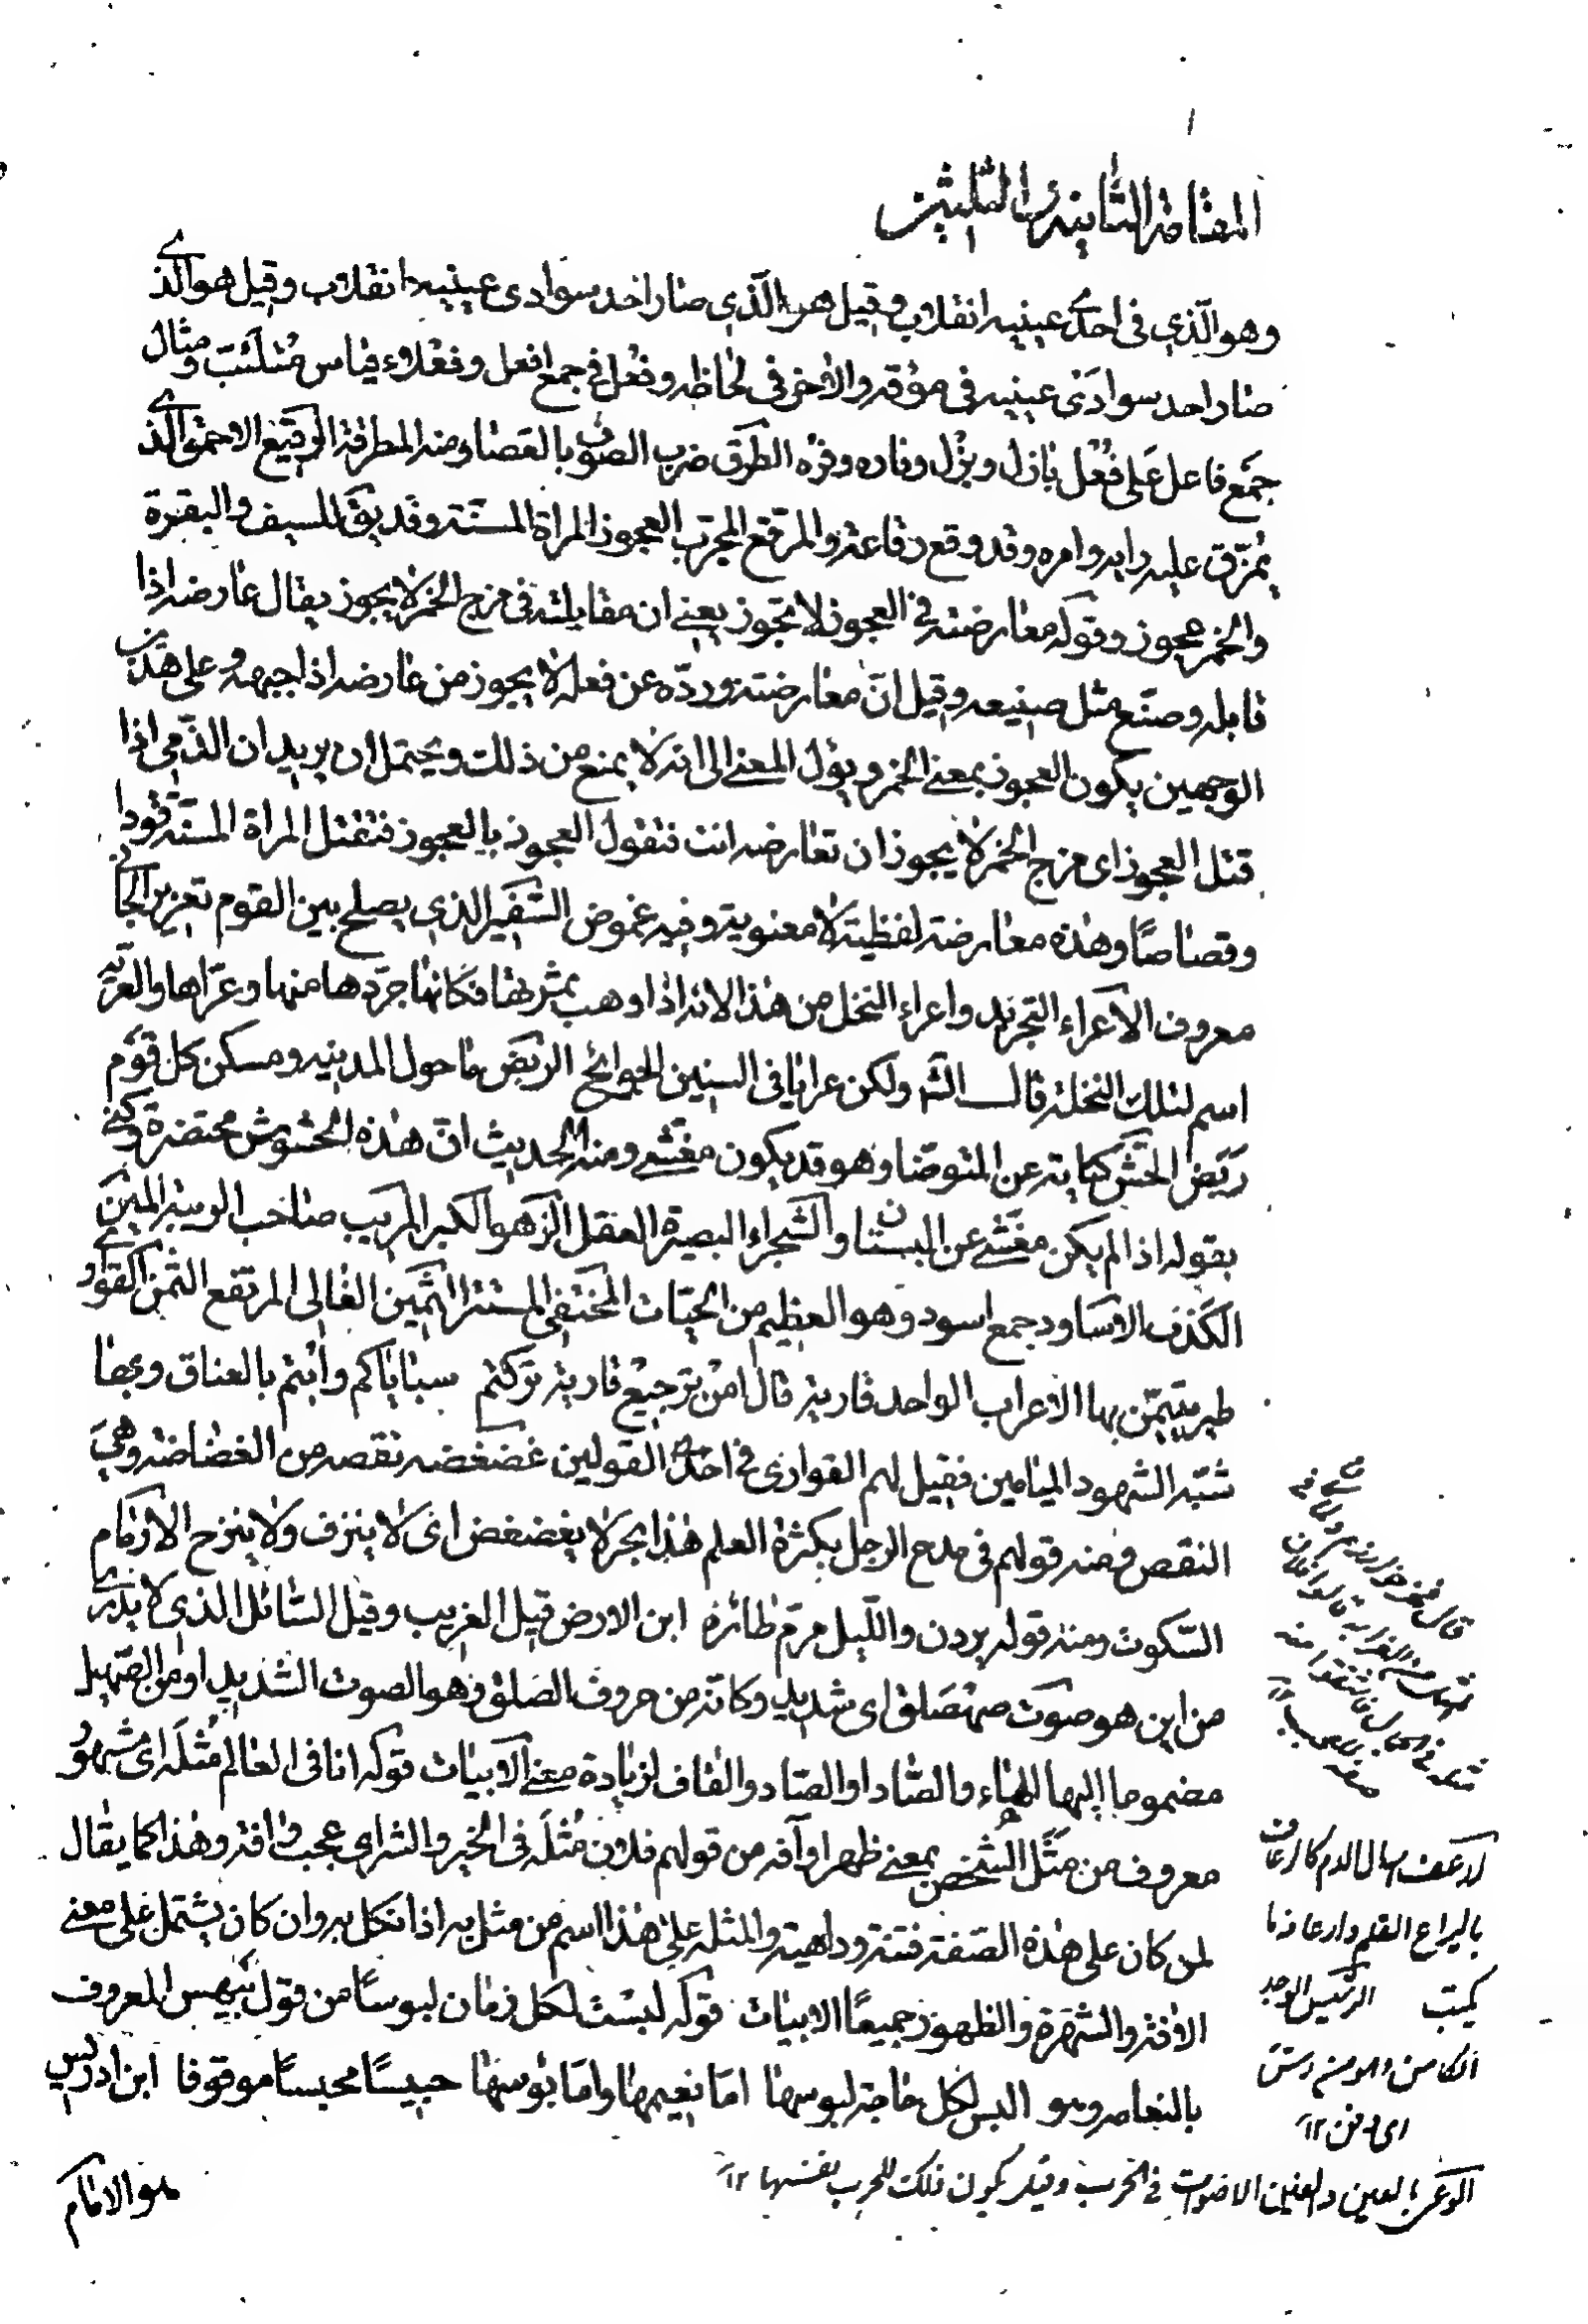 المقامة الثانية والثلثين
وهو الذي في احدى عينيه انقلاب وقيل هو الذي صار احد سوادى عينيه انقلاب وقيل هو الذي
صار احد سوادَى عينيه في موقه والاخر في لحاظه وفُعْل في جمع افعل وفعلاء قياس مُتْلَئبّ ومثال
جمع فاعل على فُعْل بازل وبزل وفاره وفره الطَرق ضرب الصوف بالعصا ومنه المطرقة الرقيع الاحمق الذي
يمزّق عليه رايه وامره وقد وقع رقاعة والمرقع المجرب العجوز المراة المسنة وقد يقال للسيف والبقرة
والخمر عجوز وقوله معارضته في العجوز لا تجوز يعنى ان مقابلته في مزج الخمر لا يجوز يقال عارضه اذا
قابله وصنع مثل صنيعه وقيل انّ معارضته وردّه عن فعله لا يجوز من عارضه اذا جبهه وعلى هذين
الوجهين يكون العجوز بمعنى الخمر ويؤل المعنى الى انه لا يمنع من ذلك ويحتمل ان يريد ان الذّمى اذا
قتل العجوز اى مزج الخمر لا يجوز ان تعارضه انت فتقول العجوز بالعجوز فتقتل المراة المسنّة قودا
وقصاصًا وهذه معارضة لفظية لا معنوية وفيه غموض السّفير الذي يصلح بين القوم تعزير الجانى
معروف الاعراء التجريد واعراء النخل من هذا لانه اذا وهب ثمرتها فكانما جرّدها منها وعرّاها والعريّة
اسم لتلك النخلة قال الشـ ولكن عرايا في السنين الجوائح الرّبَض ما حول المدينه ومسكن كل قوم
رَبَض الحشّ كناية عن المتوضّا وهو قد يكون مغشّى ومنه الحديث انّ هذه الحشوش محتضرة وكنى
بقوله اذا لم يكن مغشّى عن البستان والشجراء البصيرة العقل الزهو الكبر المريب صاحب الريبة المين
الكذب الاساود جمع اسود وهو العظيم من الحيّات المختفى المستتر الثمين الغالى المرتفع الثمن القوارى
طير يتيمّن بها الاعراب الواحد قارية قال امن ترجيع قارية تركتم سباياكم وابتم بالعناق وبها
شبّه الشهود الميامين فقيل لهم القوارى في احد القولين غضغضه نقصه من الغضاضة وهي
النقص ومنه قولهم في مدح الرجل بكثرة العلم هذا بحر لا يغضغض اى لا ينزف ولا ينزح الارمام
السّكوت ومنه قوله يردن والليل مرمّ طائره ابن الارض قيل الغريب وقيل السّائل الذي لا يدرى
من اين هو صوت صهصلق اى شديد وكانه من حروف الصلق وهو الصوت الشديد او من الصهيل
مضموما اليها الهاء والصّاد او الصّاد والقاف لزيادة معنى الابيات قوله انا في العالم مُثلَه اى مشهور
معروف من مَثَلَ الشخص بمعنى ظهر او آفه من قولهم فلان مُثلَه في الخير والشر اى عجب وافة وهذا كما يقال
لمن كان على هذه الصّفة فتنة وداهية والمثله على هذا اسم من مثل به اذا نكل به وان كان يشتمل على معنى
الافة والشهرة والظهور جميعًا الابيات قوله لبست لكل زمان لبوسًا من قول بَيهس المعروف
بالنعامه وهو البس لكل حاجة لبوسها اما نعيمها واما بوسها حبيسًا محبسًا موقوفا ابن ادريس
هو الامام
لارعف اسال الدم كالرعاف
باليراع القلم وارعافها
يكتب
اى دفن ١٢
الوغى بالعين والغين الاصوات في الحرب وقيل يكون تلك للحرب نفسها ١٢